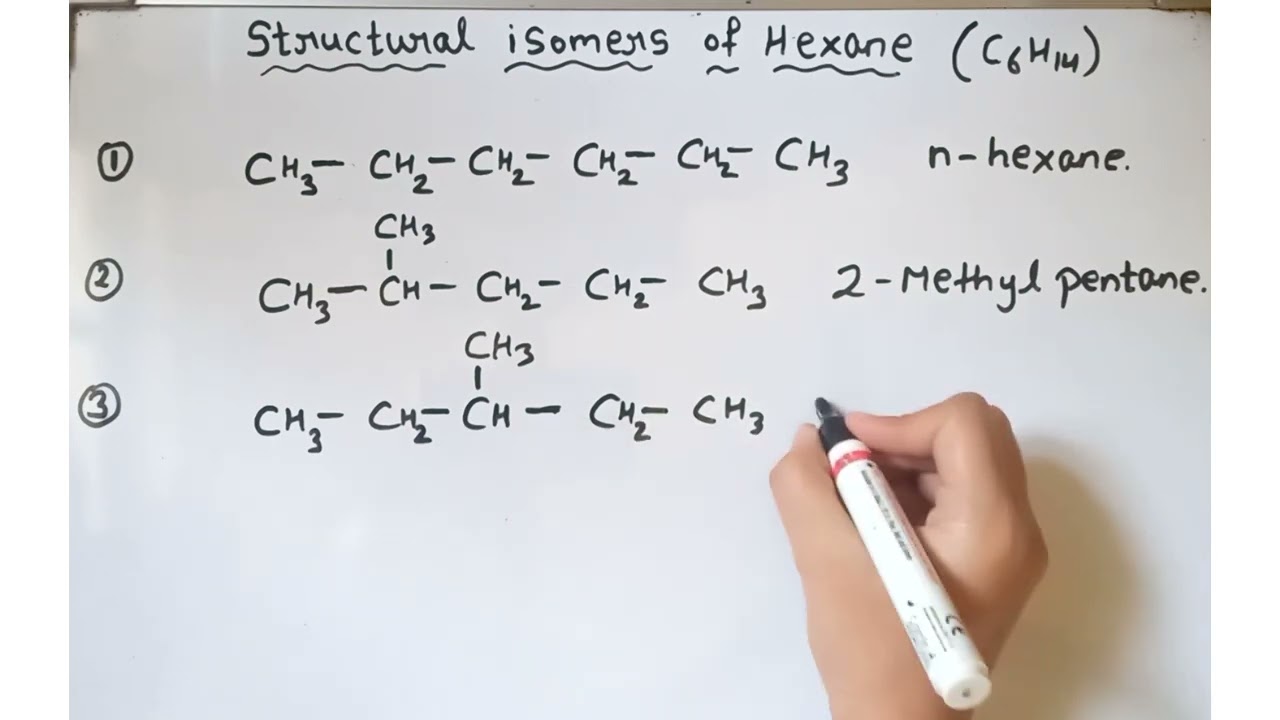 Structural isomers of Hexane (C6H14)
① CH3– CH2– CH2– CH2– CH2– CH3 n-hexane.
CH3
|
② CH3– CH– CH2– CH2– CH3 2-Methyl pentane.
CH3
|
③ CH3– CH2– CH– CH2– CH3
CE